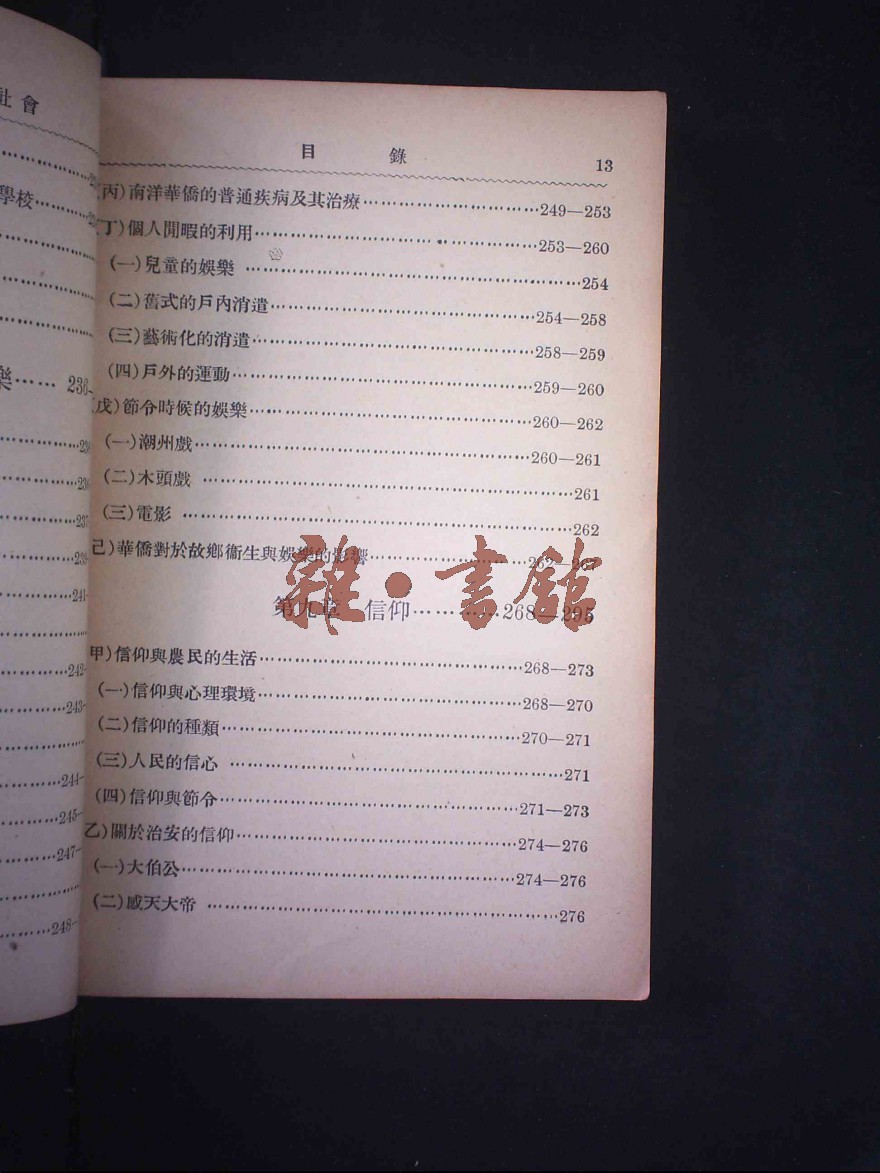 社會
學校
樂…… 236
241
242
243
244
245
247
248
目 錄 13
(丙)南洋華僑的普通疾病及其治療……249—253
(丁)個人閒暇的利用……253—260
(一)兒童的娛樂……254
(二)舊式的戶內消遣……254—258
(三)藝術化的消遣……258—259
(四)戶外的運動……259—260
(戊)節令時候的娛樂……260—262
(一)潮州戲……260—261
(二)木頭戲……261
(三)電影……262
己)華僑對於故鄉衞生與娛樂的影響……262—267
第九章 信仰……268—295
甲)信仰與農民的生活……268—273
(一)信仰與心理環境……268—270
(二)信仰的種類……270—271
(三)人民的信心……271
(四)信仰與節令……271—273
乙)關於治安的信仰……274—276
(一)大伯公……274—276
(二)感天大帝……276
雜·書館